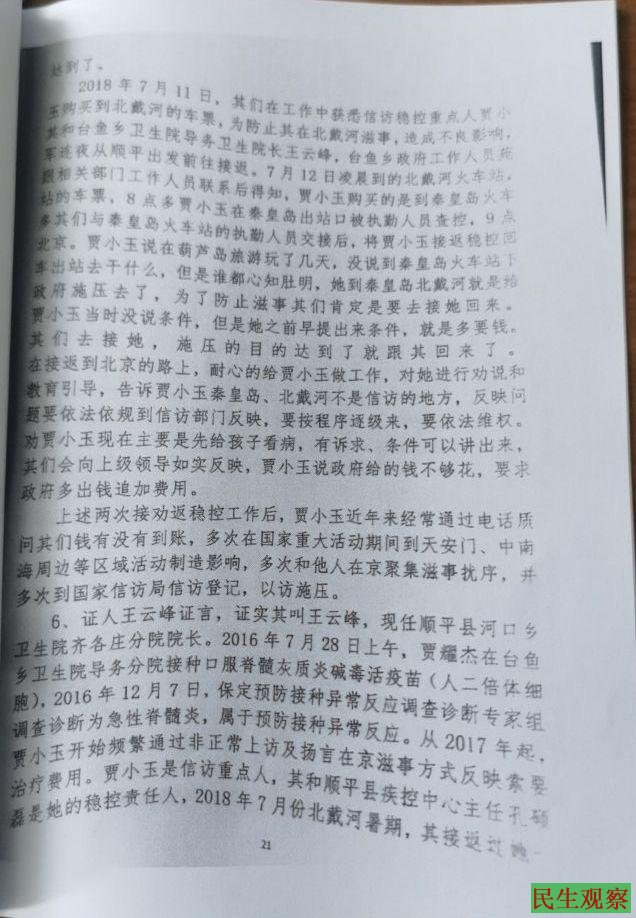 达到了。
2018年7月11日，其们在工作中获悉信访稳控重点人贾小
玉购买到北戴河的车票，为防止其在北戴河滋事，造成不良影响，
其和台鱼乡卫生院导务卫生院长王云峰，台鱼乡政府工作人员苑
军连夜从顺平出发前往接返。7月12日凌晨到的北戴河火车站，
跟相关部门工作人员联系后得知，贾小玉购买的是到秦皇岛火车
站的车票，8点多贾小玉在秦皇岛出站口被执勤人员查控，9点
多其们与秦皇岛火车站的执勤人员交接后，将贾小玉接返稳控回
北京。贾小玉说在葫芦岛旅游玩了几天，没说到秦皇岛火车站下
车出站去干什么，但是谁都心知肚明，她到秦皇岛北戴河就是给
政府施压去了，为了防止滋事其们肯定是要去接她回来。
贾小玉当时没说条件，但是她之前早提出来条件，就是多要钱。
其们去接她，施压的目的达到了就跟其回来了。
在接返到北京的路上，耐心的给贾小玉做工作，对她进行劝说和
教育引导，告诉贾小玉秦皇岛、北戴河不是信访的地方，反映问
题要依法依规到信访部门反映，要按程序逐级来，要依法维权。
劝贾小玉现在主要是先给孩子看病，有诉求、条件可以讲出来，
其们会向上级领导如实反映，贾小玉说政府给的钱不够花，要求
政府多出钱追加费用。
上述两次接劝返稳控工作后，贾小玉近年来经常通过电话质
问其们钱有没有到账，多次在国家重大活动期间到天安门、中南
海周边等区域活动制造影响，多次和他人在京聚集滋事扰序，并
多次到国家信访局信访登记，以访施压。
6、证人王云峰证言，证实其叫王云峰，现任顺平县河口乡
卫生院齐各庄分院院长。2016年7月28日上午，贾耀杰在台鱼
乡卫生院导务分院接种口服脊髓灰质炎碱毒活疫苗（人二倍体细
胞），2016年12月7日，保定预防接种异常反应调查诊断专家组
调查诊断为急性脊髓炎，属于预防接种异常反应。从2017年起，
贾小玉开始频繁通过非正常上访及扬言在京滋事方式反映索要
治疗费用。贾小玉是信访重点人，其和顺平县疾控中心主任孔硕
磊是她的稳控责任人，2018年7月份北戴河暑期，其接返过她一
21
民生观察